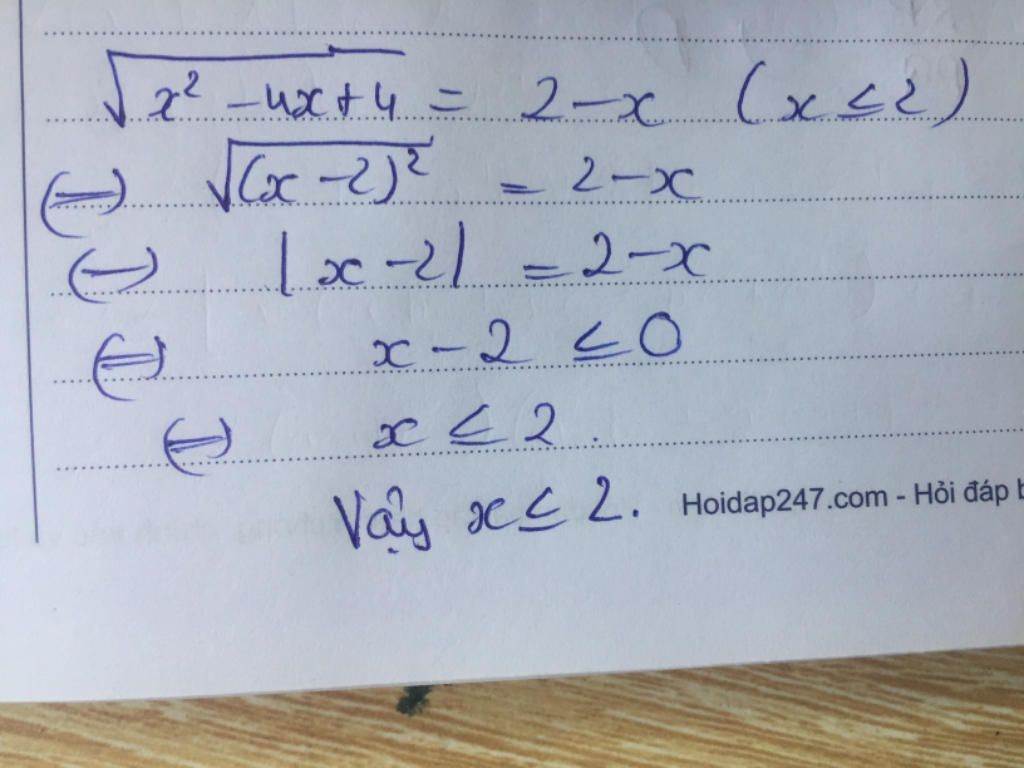 √(x² - 4x + 4) = 2 - x (x ≤ 2)
⇔ √((x - 2)²) = 2 - x
⇔ |x - 2| = 2 - x
⇔ x - 2 ≤ 0
⇔ x ≤ 2.
Vậy x ≤ 2.
Hoidap247.com - Hỏi đáp